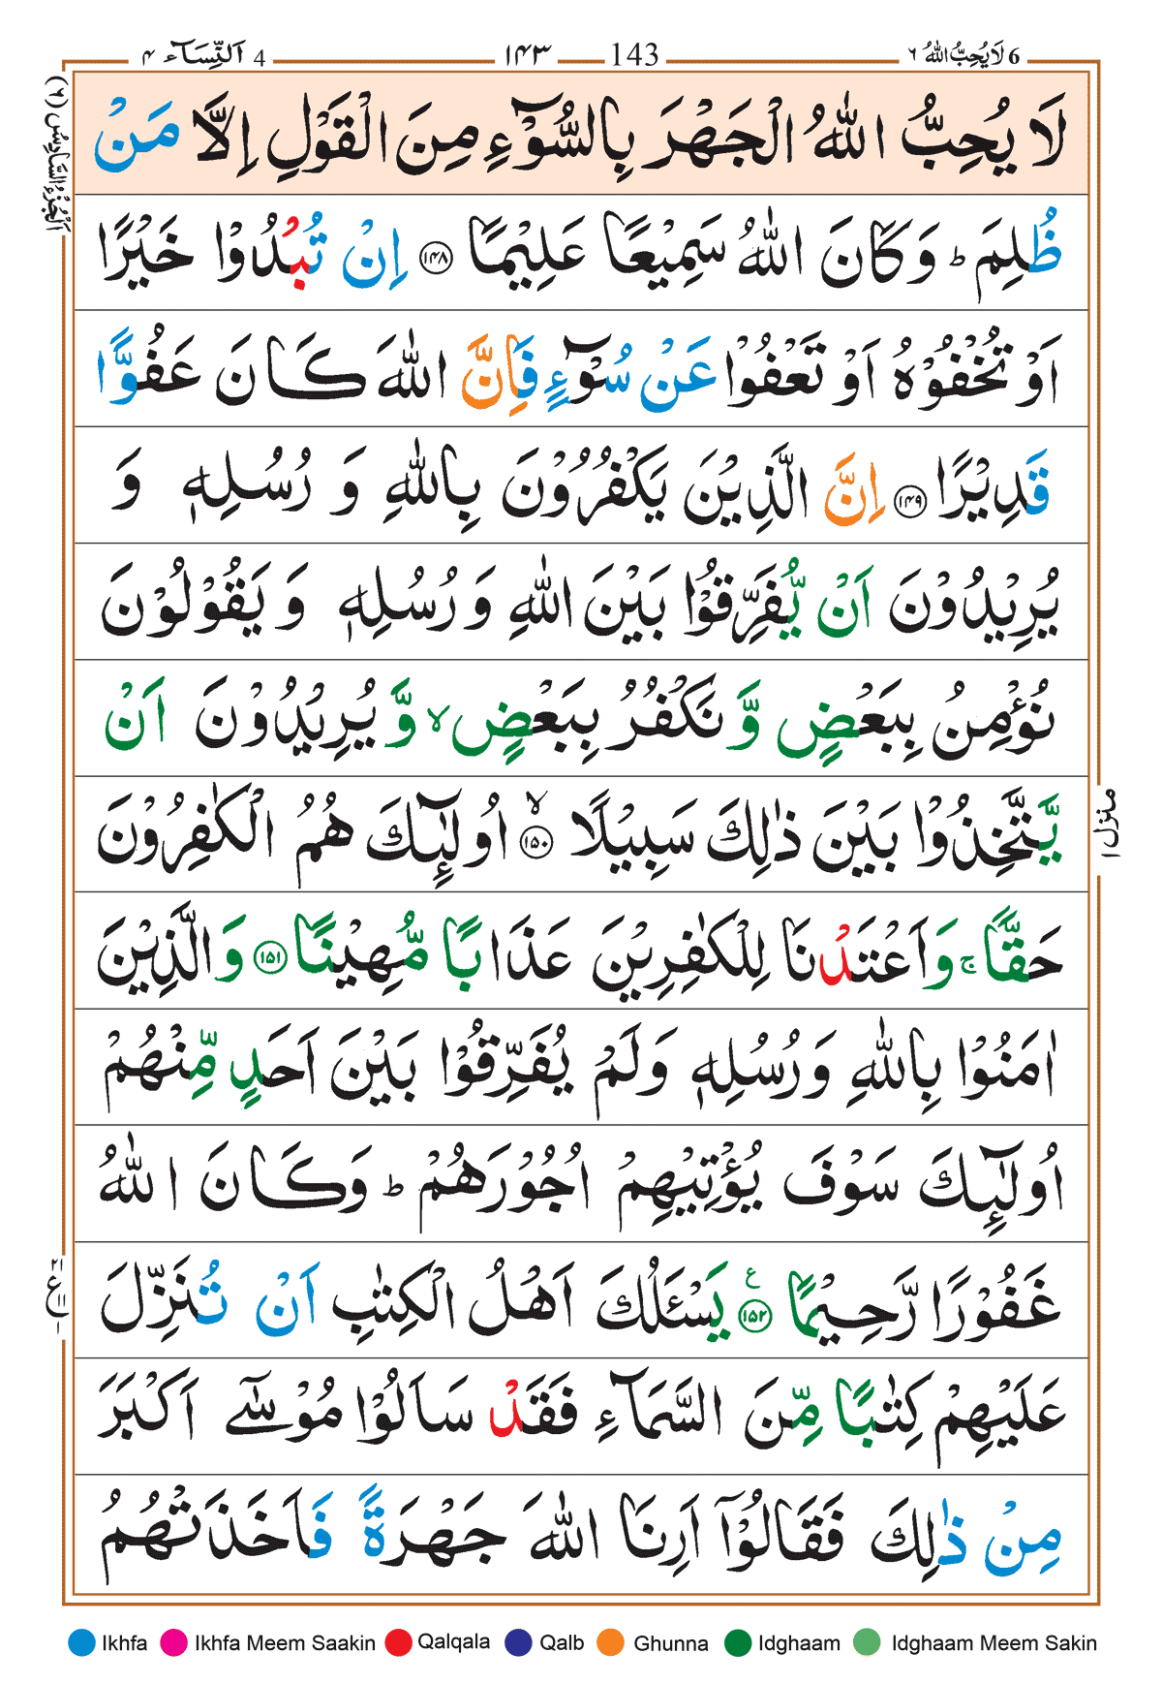 6 لَا يُحِبُّ اللهُ ٦ 143 ١٤٣ 4 اَلنِّسَآء ٤
اَلْجُزْءُ السَّادِسُ (٦)
لَا يُحِبُّ اللّٰهُ الْجَهْرَ بِالسُّوْٓءِ مِنَ الْقَوْلِ اِلَّا مَنْ
ظُلِمَ ؕ وَكَانَ اللّٰهُ سَمِيْعًا عَلِيْمًا ﴿۱۴۸﴾ اِنْ تُبْدُوْا خَيْرًا
اَوْ تُخْفُوْهُ اَوْ تَعْفُوْا عَنْ سُوْٓءٍ فَاِنَّ اللّٰهَ كَانَ عَفُوًّا
قَدِيْرًا ﴿۱۴۹﴾ اِنَّ الَّذِيْنَ يَكْفُرُوْنَ بِاللّٰهِ وَ رُسُلِهٖ وَ
يُرِيْدُوْنَ اَنْ يُّفَرِّقُوْا بَيْنَ اللّٰهِ وَ رُسُلِهٖ وَ يَقُوْلُوْنَ
نُؤْمِنُ بِبَعْضٍ وَّ نَكْفُرُ بِبَعْضٍ ۙ وَّ يُرِيْدُوْنَ اَنْ
يَّتَّخِذُوْا بَيْنَ ذٰلِكَ سَبِيْلًا ﴿۱۵۰﴾ۙ اُولٰٓئِكَ هُمُ الْكٰفِرُوْنَ
حَقًّا ۚ وَاَعْتَدْنَا لِلْكٰفِرِيْنَ عَذَابًا مُّهِيْنًا ﴿۱۵۱﴾ وَالَّذِيْنَ
اٰمَنُوْا بِاللّٰهِ وَرُسُلِهٖ وَلَمْ يُفَرِّقُوْا بَيْنَ اَحَدٍ مِّنْهُمْ
اُولٰٓئِكَ سَوْفَ يُؤْتِيْهِمْ اُجُوْرَهُمْ ؕ وَكَانَ اللّٰهُ
غَفُوْرًا رَّحِيْمًا ﴿۱۵۲﴾ع يَسْئَلُكَ اَهْلُ الْكِتٰبِ اَنْ تُنَزِّلَ
عَلَيْهِمْ كِتٰبًا مِّنَ السَّمَآءِ فَقَدْ سَاَلُوْا مُوْسٰٓى اَكْبَرَ
مِنْ ذٰلِكَ فَقَالُوْٓا اَرِنَا اللّٰهَ جَهْرَةً فَاَخَذَتْهُمُ
منزل ١
Ikhfa Ikhfa Meem Saakin Qalqala Qalb Ghunna Idghaam Idghaam Meem Sakin